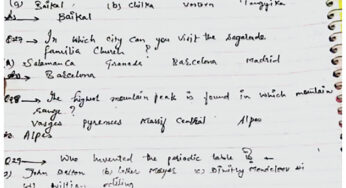 (a) Baikal (b) Chilka
Baikal
Q27 → In Which city can you visit the
familia Church ?
a) Salamanca Granada Barcelona Madrid
Barcelona
Q28 → The highest mountain peak is found in which mountain
range ?
Vosges pyrenees Massif Central Alpes
Alpes
Q29 → Who invented the periodic table ?
a) John Dalton (b) Meyer (c) Dimitry Mendeleev